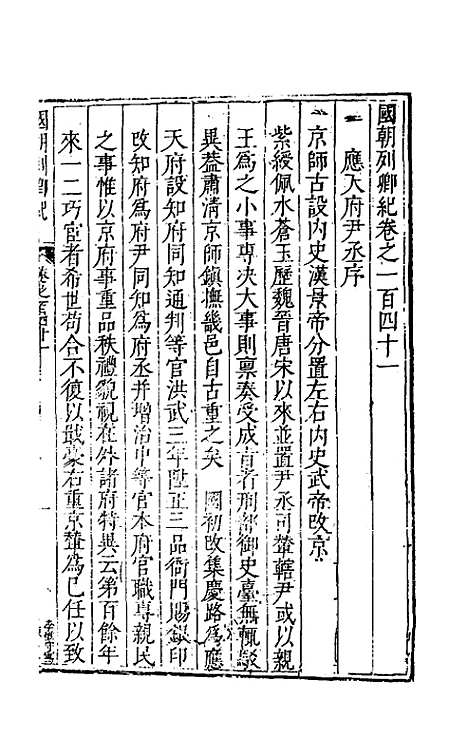 國朝列卿紀卷之一百四十一
應天府尹丞序
京師古設內史漢景帝分置左右內史武帝改京
紫綬佩水蒼玉歷魏晉唐宋以來並置尹丞司輦轄尹或以親
王為之小事專决大事則禀奏受成言者刑部御史臺無輒駁
異葢肅清京師鎮撫畿邑自古重之矣　國初改集慶路為應
天府設知府同知通判等官洪武三年陞正三品衙門賜銀印
改知府為府尹同知為府丞并增治中等官本府官職專親民
之事惟以京府事重品秩禮貌視在外諸府特異云第百餘年
來一二巧宦者希世苟合不復以戢豪右重京輦為己任以致
國朝列卿紀